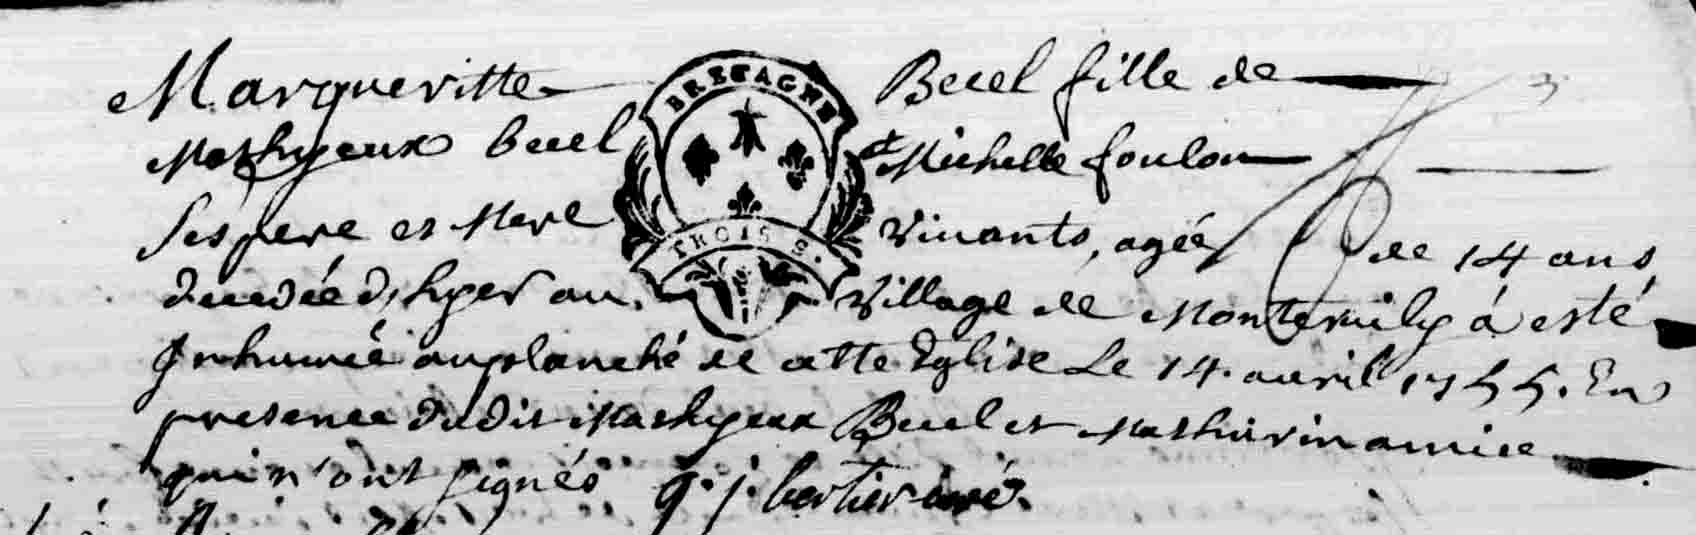 Margueritte Becel fille de
BRETAGNE
Mathyeux becel et Michelle foulon
Ses pere et Mere Vivants, agée de 14 ans
TROIS S.
decedée d'hyer au Village de Montervily á esté
Inhumée au planché de cette Eglise Le 14. avril 1755. En
presence dudit Mathyeux Becel et Mathurin amice
qui n'ont signés g. j. bertier curé.